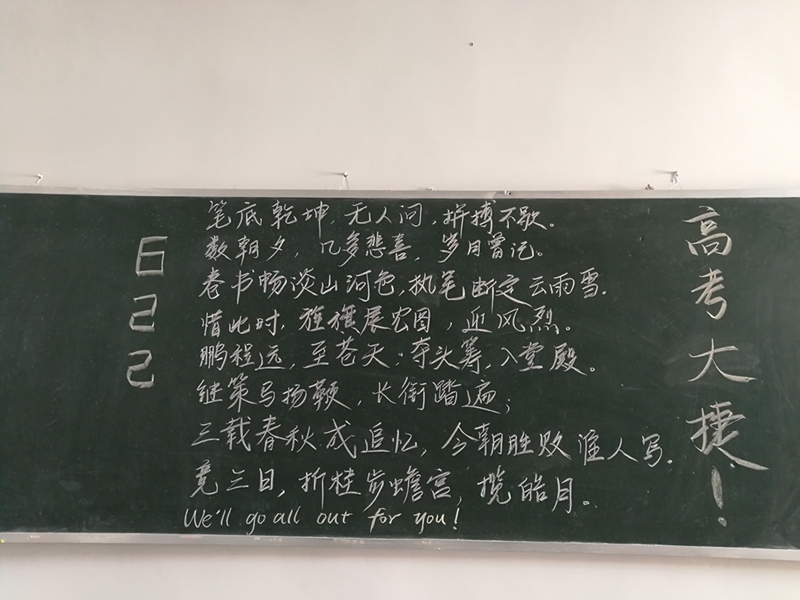 笔底乾坤,无人问,拼搏不歇。
数朝夕,几多悲喜,岁月曾记。
卷书畅谈山河色,执笔断定云雨雪.
惜此时,旌旗展宏图,迎风烈。
鹏程远,至苍天·夺头筹,入堂殿。
继策马扬鞭,长街踏遍;
三载春秋成追忆,今朝胜败谁人写.
竟三日,折桂步蟾宫,揽皓月。
We'll go all out for you!
高考大捷!